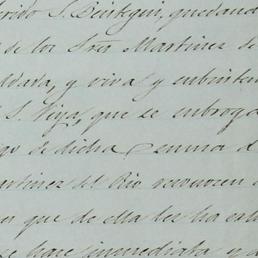 rido S. Beistegui, quedand
de los Sres Martinez de
ada, y viva y subsisten
S. Viya, que se subroga
go de dicha suma d
artinez del Rio reconocen
que de ella les ha
se hace inmediata y